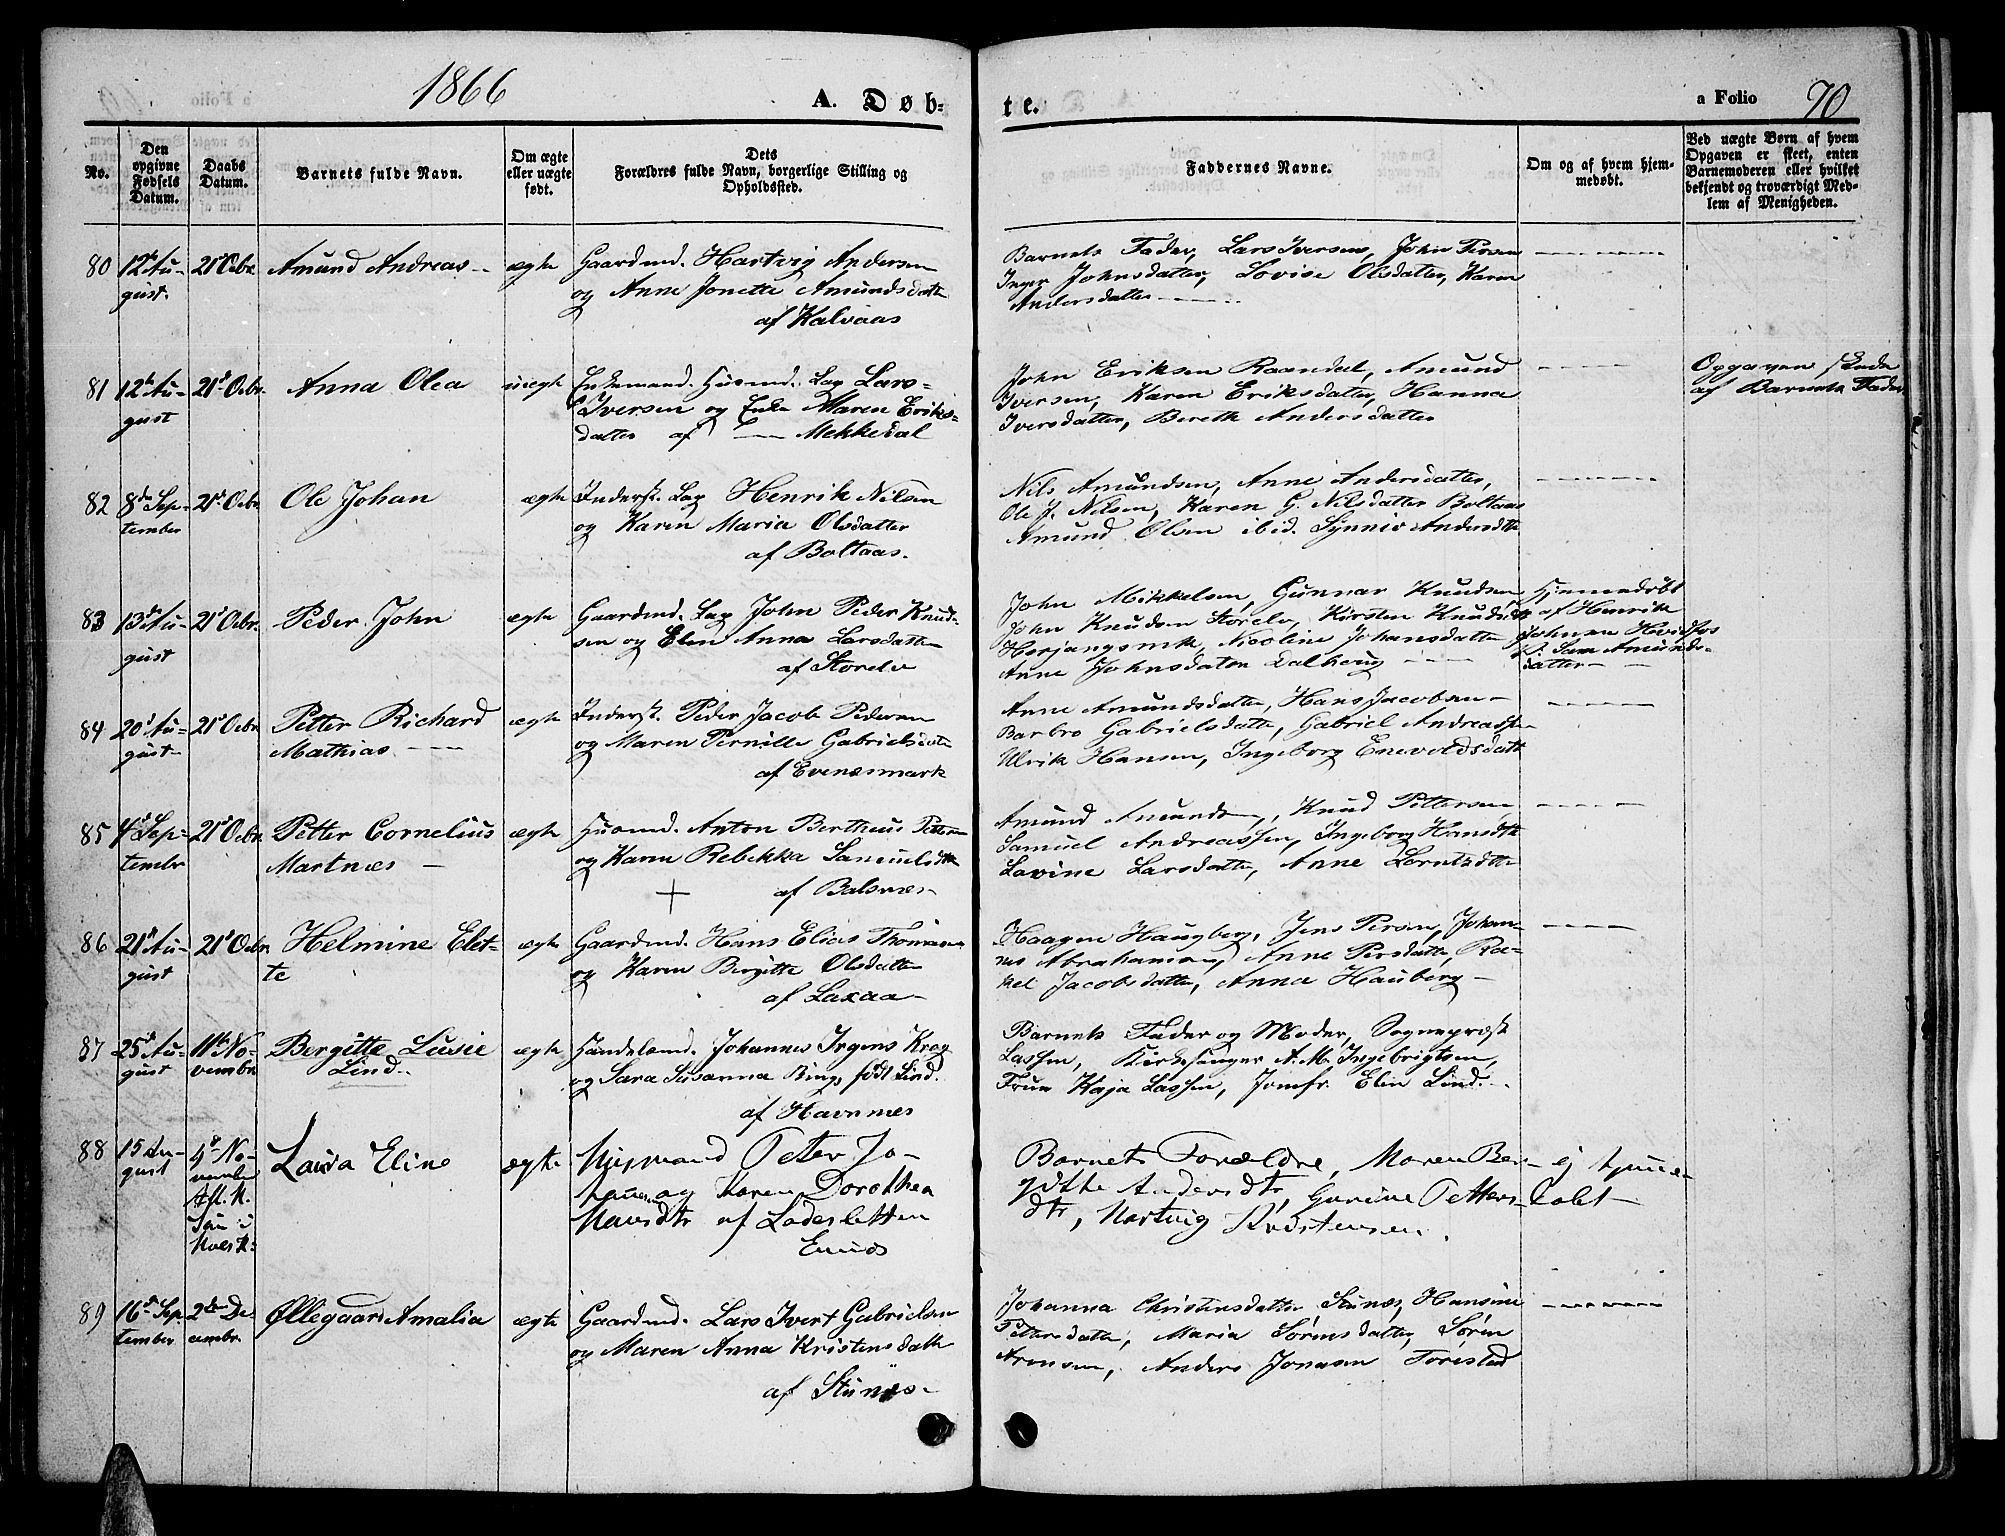 1866
A. Døb-
te.
a Folio 70
No.
Den
opgivne
Fødsels
Datum.
Daabs
Datum.
Barnets fulde Navn.
Om ægte
eller uægte
født.
Dets
Forældres fulde Navn, borgerlige Stilling og
Opholdssted.
Faddernes Navne.
Om og af hvem hjem-
medøbt.
Ved uægte Børn af hvem
Opgaven er skeet, enten
Barnemoderen eller hvilket
bekjendt og troværdigt Med-
lem af Menigheden.
80 12te Au- 21de Octbr Amund Andreas ægte Gaardmd. Hartvig Andersen
gust. og Anne Jonette Amundsdatter
af Kalvaas
Barnets Fader, Lars Iversen, John Persen
Inger Johnsdatter, Lovise Olsdatter, Karen
Andersdatter
81 12te Au- 21de Octbr. Anna Olea uægte Enkemand. Husmd. Lap Lars
gust Iversen og Enke Maren Eriks-
datter af Mekkedal
John Eriksen Raandal, Amund
Iversen, Karen Eriksdatter, Hanna
Iversdatter, Bereth Andersdatter
Opgaven skede
af Barnets Fader
82 8de Sep- 21de Octbr. Ole Johan ægte Inderst. Lap Henrik Nilsen
tember og Karen Maria Olsdatter
af Boltaas.
Nils Amundsen, Anne Andersdatter,
Ole J. Nilsen, Karen G. Nilsdatter Boltaas
Amund Olsen ibid. Synniv Andersdtr
83 13de Au- 21de Octbr. Peder John ægte Gaardmd. Lap John Peder Knud-
gust sen og Elen Anna Larsdatter
af Storelv
John Mikkelsen, Gunnar Knudsen,
John Knudsen Storelv, Kirsten Knudsdtr
Herjangsmk, Nicoline Johansdatter
Anne Johnsdatter Dalberg
Hjemmedøbt
af Henrik
Johnsen Hvidfos
Amunds-
datter
84 20de Au- 21de Octbr Petter Richard ægte Inderst. Peder Jacob Pedersen
gust Mathias og Maren Pernille Gabrielsdatter
af Evenæsmark
Anne Amundsdatter, Hans Jacobsen
Barbro Gabrielsdatter, Gabriel Andreassen
Ulrik Hansen, Ingeborg Enevoldsdatter
85 4de Sep- 21de Octbr. Petter Cornelius ægte Husmd. Anton Bertheus Pettersen
tembr Martnæs og Karen Rebekka Samuelsdtr
af Balsnæs
Amund Amundsen, Knud Pettersen
Samuel Andreassen, Ingeborg Hansdtr
Lovine Larsdatter, Anne Lorntzdtr
86 21de Au- 21de Octbr. Helmine Elet- ægte Gaardmd. Hans Elias Thomassen
gust te og Karen Birgitte Olsdatter
af Laxaa
Haagen Haugberg, Jens Persen, Johan-
nes Abrahamsen, Anne Persdatter, Ra-
kel Jacobsdatter, Anna Hauberg
87 25de Au- 11te No- Bergitte Lusie ægte Handelsmd. Johannes Irgens Krog
gust vembr. Lind og Sara Susanna Bing, født Lind.
af Havnnæs
Barnets Fader og Moder, Sognepræst
Lassen, Kirkesanger A. M. Ingebrigtsen,
Frue Kaja Lassen, Jomfr. Elen Lind.
88 15 Au- 4de No- Laura Eline ægte Peter Jo-
gust vembr og Karen Dorothea
Hansdtr af Lodesletten
Barnets Forældre, Maren Ber-
gitthe Andersdtr, Gurine Petters-
dtr, Hartvig Kristensen.
ej hjemme-
døbt
89 16de Sep- 2den De- Øllegaard Amalia ægte Gaardmd. Lars Ivert Gabrielsen
tember cembr. og Maren Anna Kristensdatter
af Stunæs
Johanna Christensdatter Stunæs, Hansine
Petersdatter, Maria Sørensdatter, Søren
Arensen, Anders Jonasen Forestad